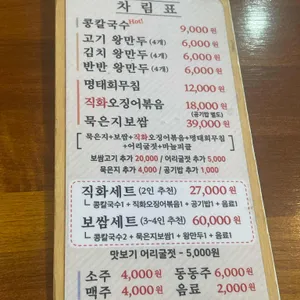 차 림 표
콩칼국수 Hot! 9,000원
고기 왕만두(4개) 6,000원
김치 왕만두(4개) 6,000원
반반 왕만두(4개) 6,000원
명태회무침 12,000원
직화오징어볶음 18,000원
(공기밥 별도)
묵은지보쌈 39,000원
묵은지+보쌈+직화오징어볶음+명태회무침
+어리굴젓+마늘피클
보쌈고기 추가 20,000 / 어리굴젓 추가 5,000
묵은지 추가 4,000 / 공기밥 추가 1,000
직화세트(2인 추천) 27,000원
ㄴ콩칼국수1 + 직화오징어볶음1 + 공기밥1 + 음료1
보쌈세트(3~4인 추천) 60,000원
ㄴ콩칼국수2 + 묵은지보쌈1 + 왕만두1 + 음료1
맛보기 어리굴젓 - 5,000원
소주 4,000원 동동주 6,000원
맥주 4,000원 음료 2,000원